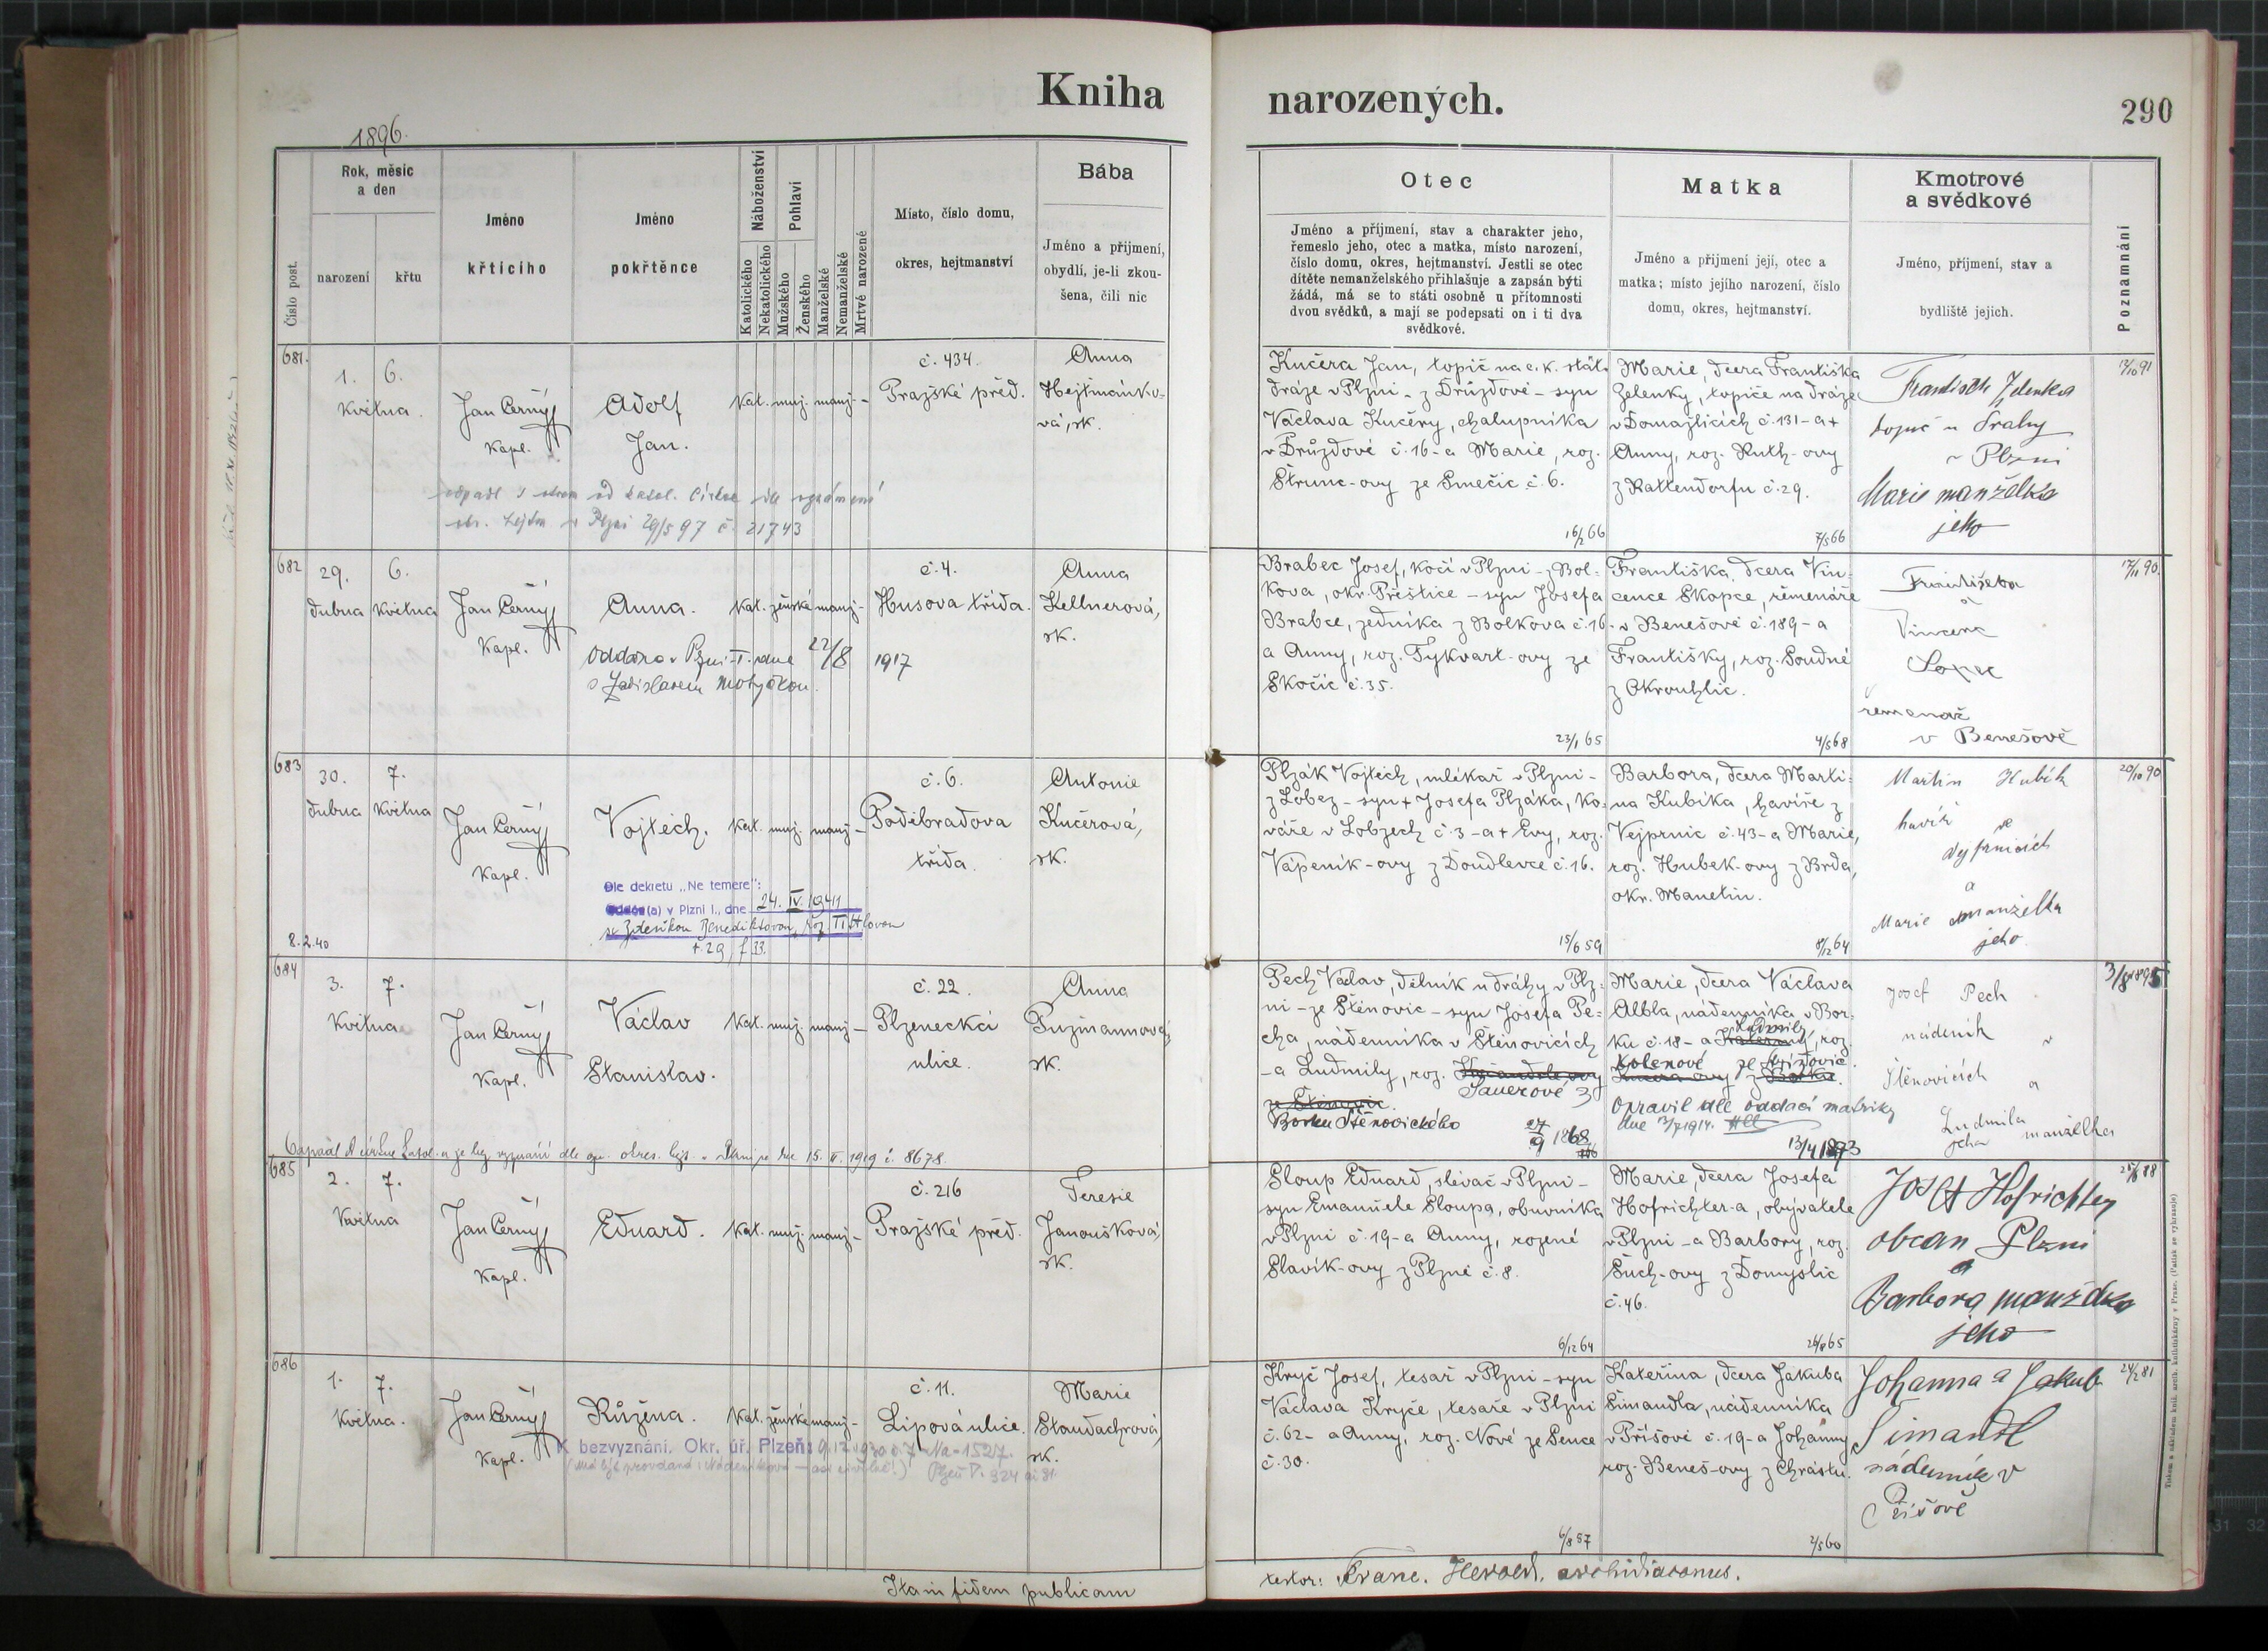 Kniha narozených.
290
1896.
Číslo post.
Rok, měsíc
a den
narození
křtu
Jméno
křtícího
Jméno
pokřtěnce
Náboženství
Katolického
Nekatolického
Pohlaví
Mužského
Ženského
Manželské
Nemanželské
Mrtvě narozené
Místo, číslo domu,
okres, hejtmanství
Bába
Jméno a příjmení,
obydlí, je-li zkou-
šena, čili nic
Otec
Jméno a příjmení, stav a charakter jeho,
řemeslo jeho, otec a matka, místo narození,
číslo domu, okres, hejtmanství. Jestli se otec
dítěte nemanželského přihlašuje a zapsán býti
žádá, má se to státi osobně u přítomnosti
dvou svědků, a mají se podepsati on i ti dva
svědkové.
Matka
Jméno a příjmení její, otec a
matka; místo jejího narození, číslo
domu, okres, hejtmanství.
Kmotrové
a svědkové
Jméno, příjmení, stav a
bydliště jejich.
Poznamnání
681.
1. 6.
května.
Jan Černý
Kapl.
Adolf
Jan.
kat. muž. manž. -
č. 434.
Pražské před.
Anna
Hejtmánko-
vá, zk.
Kučera Jan, topič na c. k. stát.
dráze v Plzni - z Drůzdové - syn
Václava Kučery, chalupníka
v Drůzdové č. 16 - a Marie, roz.
Štrunc-ovy ze Smečic č. 6.
16/2 66
Marie, dcera Františka
Zelenky, topiče na dráze
v Domažlicích č. 131 - a +
Anny, roz. Ruth-ovy
z Rattendorfu č. 29.
7/5 66
František Zelenka
topič u Drahy
v Plzni
Marie manželka
jeho
12/10 91
v Plzni 29/5 97 č. 21743
682
29. 6.
dubna května
Jan Černý
Kapl.
Anna.
kat. ženské manž. -
č. 4.
Husova třída.
Anna
Kellnerová,
zk.
oddána v Plzni I. dne 22/8 1917
s Ladislavem Motyčkou.
Brabec Josef, kočí v Plzni - z Bol-
kova, okr. Přeštice - syn Josefa
Brabce, zedníka z Bolkova č. 16.
a Anny, roz. Tykvart-ovy ze
Skočic č. 35.
23/1 65
Františka, dcera Vin-
cence Skopce, řemenáře
v Benešově č. 189 - a
Františky, roz. Soudné
z Okrouhlic.
4/5 68
Františka
a
Vincenc
řemenář
v Benešově
17/11 90.
683
30. 7.
dubna května
Jan Černý
Kapl.
Vojtěch.
kat. muž. manž. -
č. 6.
Poděbradova
třída.
Antonie
Kučerová,
zk.
Dle dekretu „Ne temere":
(a) v Plzni I., dne 24. IV. 1941
se Zdeňkou Benediktovou, roz. Titlovou
t. 29, f. 33.
8. 2. 40
Plzák Vojtěch, mlékař v Plzni -
z Lobez - syn + Josefa Plzáka, ko-
váře v Lobzech č. 3 - a + Evy, roz.
Vápeník-ovy z Doudlevce č. 16.
15/6 59
Barbora, dcera Marti-
na Kubíka, havíře z
Vejprnic č. 43 - a Marie,
roz. Hubek-ovy z Brda,
okr. Manetín.
8/12 64
Martin Kubík
havíř ve
Vejprnicích
a
Marie manželka
jeho.
20/10 90
684
3. 7.
května
Jan Černý
Kapl.
Václav
Stanislav.
kat. muž. manž. -
č. 22.
Plzenecká
ulice.
Anna
Puzmannová,
zk.
Pech Václav, dělník u dráhy v Plz-
ni - ze Štěnovic - syn Josefa Pe-
cha, nádenníka v Štěnovicích
- a Ludmily, roz.
Sauerové z
Borku Štěnovického
27/9 1868
Marie, dcera Václava
Albla, nádenníka v Bor-
ku č. 18 - a Ludmily, roz.
Kolenové ze
Opravil dle oddací matriky
dne 13/7 1914.
13/4 1873
Josef Pech
nádeník v
Štěnovicích
a
Ludmila
jeho manželka
3/8 1895
15. II. 1919 č. 8678.
685
2. 7.
května
Jan Černý
Kapl.
Eduard.
kat. muž. manž. -
č. 216
Pražské před.
Teresie
Janoušková,
zk.
Sloup Eduard, slevač v Plzni -
syn Emanuele Sloupa, obuvníka
v Plzni č. 19 - a Anny, rozené
Slavík-ovy z Plzně č. 8.
6/12 64
Marie, dcera Josefa
Hofrichter-a, obývatele
v Plzni - a Barbory, roz.
Such-ovy z Domyslic
č. 46.
26/8 65
Josef Hofrichter
občan Plzni
a
Barbora manželka
jeho
25/6 88
686
1. 7.
května.
Jan Černý
Kapl.
Růžena.
kat. ženské manž. -
č. 11.
Lipová ulice.
Marie
Staudachrová,
zk.
K bezvyznání. Okr. úř. Plzeň: 9. 12. 1930
Kryč Josef, tesař v Plzni - syn
Václava Kryče, tesaře v Plzni
č. 62 - a Anny, roz. Nové ze Sence
č. 30.
6/8 57
Kateřina, dcera Jakuba
Šimandla, nádenníka
v Příšově č. 19 - a Johanny
roz. Beneš-ovy z Chrástu.
2/5 60
Johanna a Jakub
Šimandl
nádeník v
Příšově
24/2 81
Ita in fidem publicam
testor: Franc. Herold, archidiaconus.